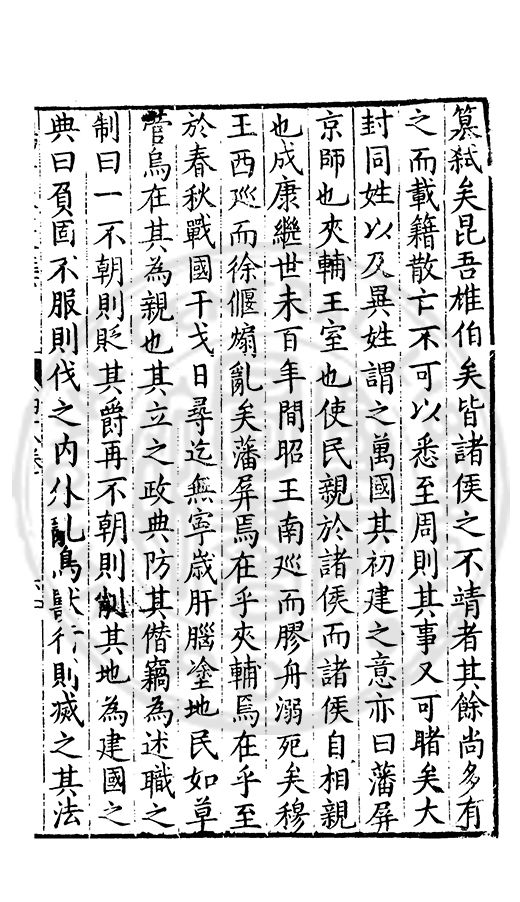 篡弑矣昆吾樵伯矣皆諸侯之不靖者其餘尚多有
之而載籍散亡不可以悉至周則其事又可睹矣大
封同姓以及異姓謂之萬國其初建之意亦曰藩屏
京師也夾輔王室也使民親於諸侯而諸侯自相親
也成康繼世未百年間昭王南廵而膠舟溺死矣穆
王西廵而徐偃煽亂矣藩屏焉在乎夾輔焉在乎至
於春秋戰國干戈日尋迄無寧歳肝腦塗地民如草
菅烏在其為親也其立之政典防其僭竊為述職之
制曰一不朝則貶其爵再不朝則削其地為建國之
典曰負固不服則伐之内外亂鳥獸行則滅之其法